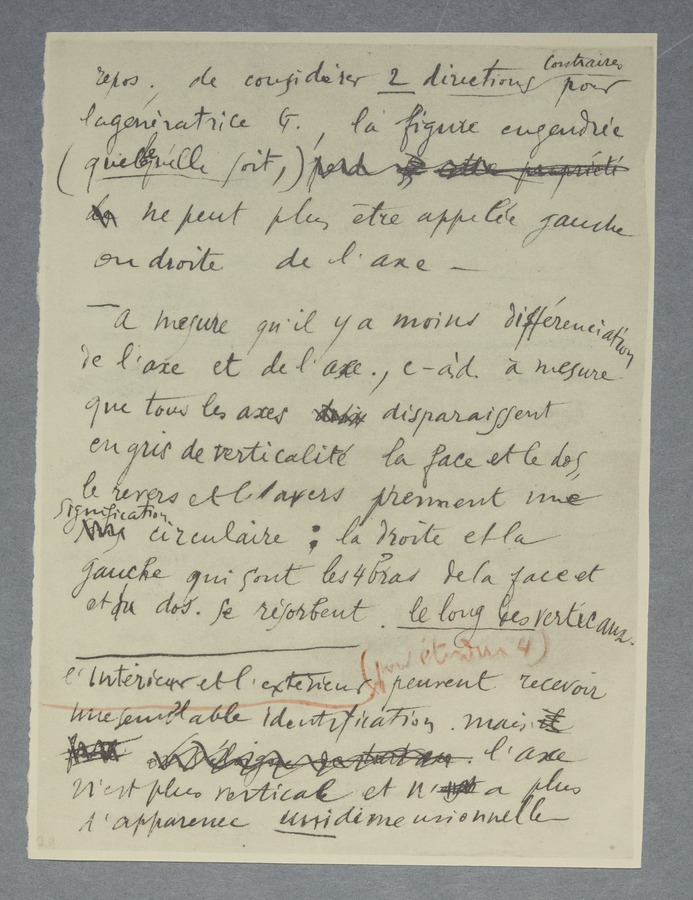 repos., de considérer 2 directions contraires pour
la génératrice G., la figure engendrée
(quelle qu'elle soit,) perd cette propriété
ne peut plus être appelée gauche
ou droite de l'axe —
— A mesure qu'il y a moins différenciation
de l'axe et de l'axe., c-à-d. à mesure
que tous les axes disparaissent
en gris de verticalité la face et le dos,
le revers et l'avers prennent une
signification circulaire : la droite et la
gauche qui sont les 4 bras de la face et
et du dos. se résorbent. le long des verticaux.
l'Intérieur et l'extérieur (pour étendue 4) peuvent recevoir
une semblable identification. mais
l'axe
n'est plus vertical et n'a plus
d'apparence unidimensionnelle